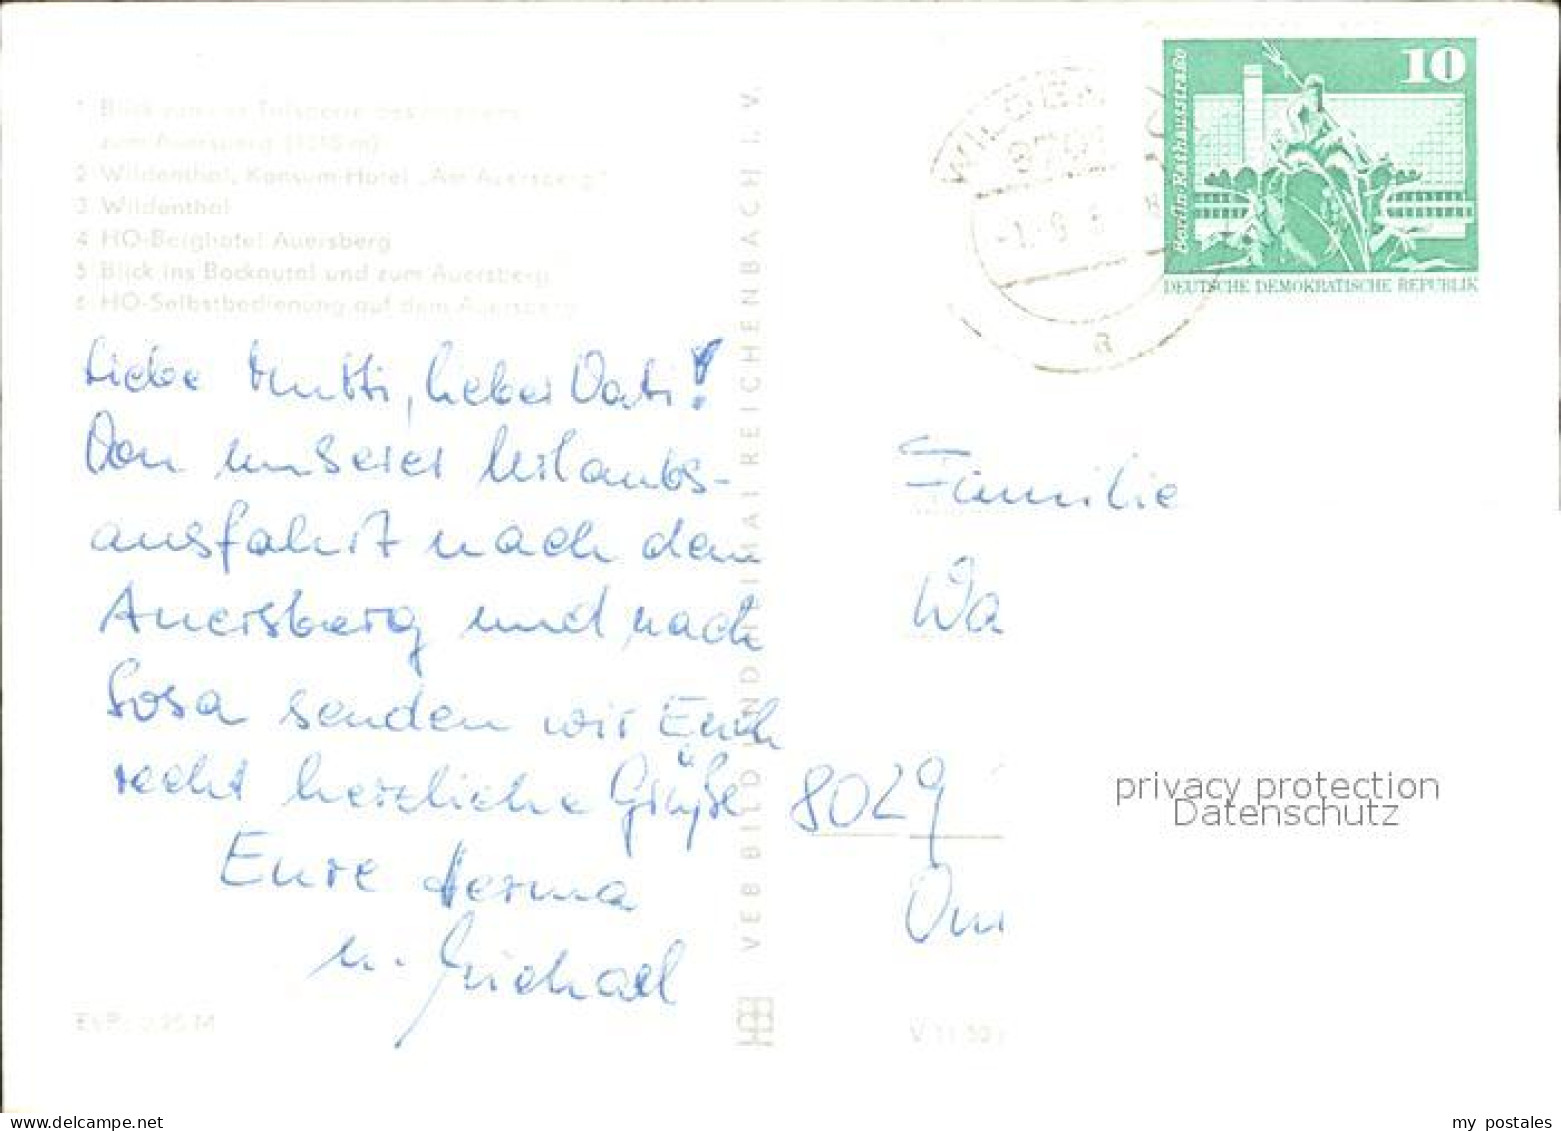 1 Blick von der Talsperre des Friedens
zum Auersberg (1018 m)
2 Wildenthal, Konsum-Hotel „Am Auersberg"
3 Wildenthal
4 HO-Berghotel Auersberg
5 Blick ins Bockautal und zum Auersberg
6 HO-Selbstbedienung auf dem Auersberg
Liebe Mutti, lieber Vati!
Von unserer Urlaubs-
ausfahrt nach dem
Auersberg und nach
Sosa senden wir Euch
recht herzliche Grüße
Eure
u. Michael
EVP: 0,25 M
VEB BILD UND HEIMAT REICHENBACH I. V.
10
Berlin-Rathausstraße
DEUTSCHE DEMOKRATISCHE REPUBLIK
a
Familie
Wa
8029
privacy protection
Datenschutz
my postales